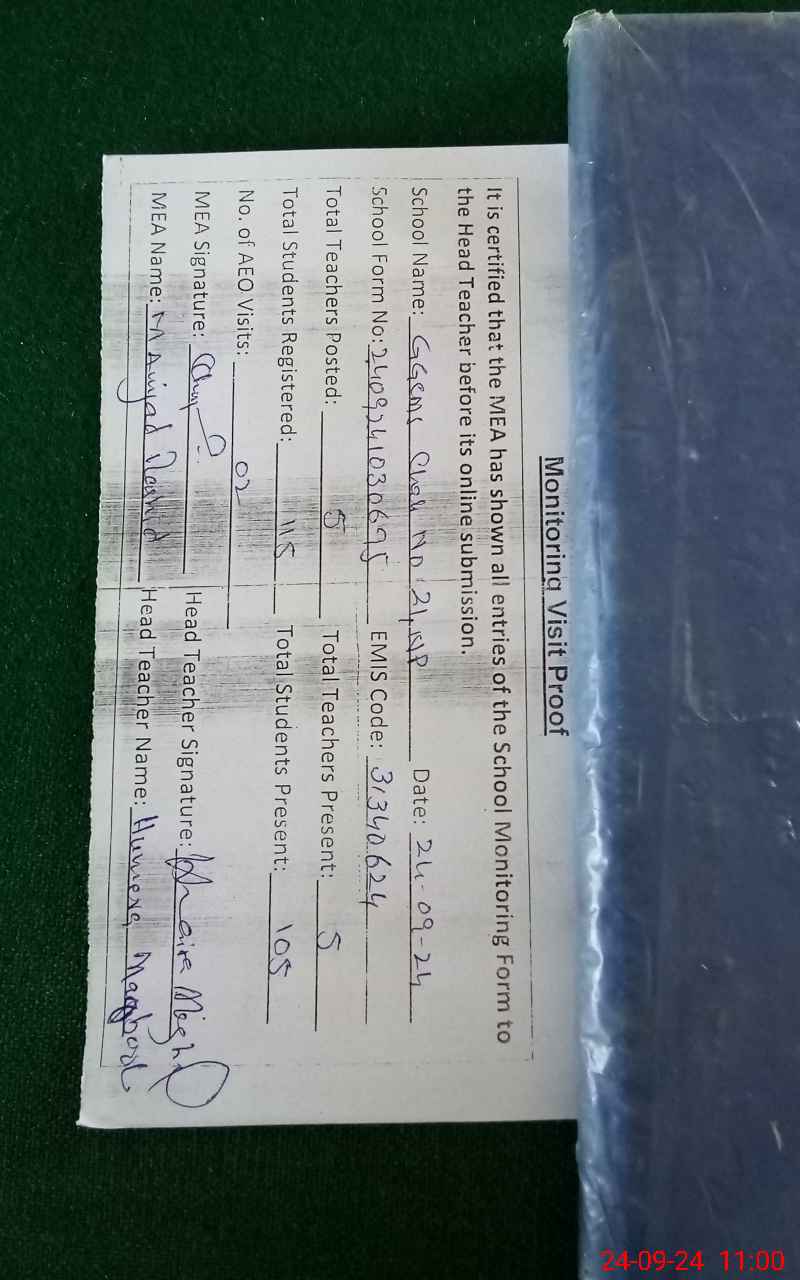 Monitoring Visit Proof
It is certified that the MEA has shown all entries of the School Monitoring Form to
the Head Teacher before its online submission.
School Name: GGEMS Chak No 21, NP Date: 24-09-24
School Form No: 2409241030695 EMIS Code: 31340624
Total Teachers Posted: 5 Total Teachers Present: 5
Total Students Registered: 115 Total Students Present: 105
No. of AEO Visits: 02
MEA Signature: Head Teacher Signature:
MEA Name: M Amjad Rashid Head Teacher Name: Humera Maqbool
24-09-24 11:00